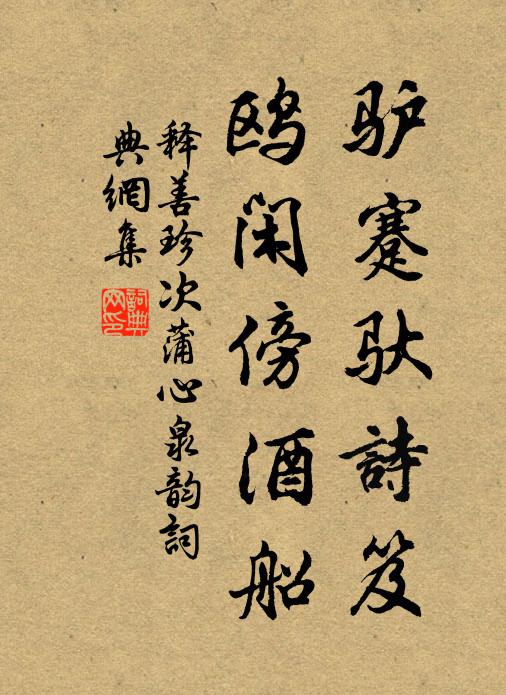 驴蹇驮詩笈
鸥闲傍酒船
释善珍次蒲心泉韵詞
典網集
詞典网印